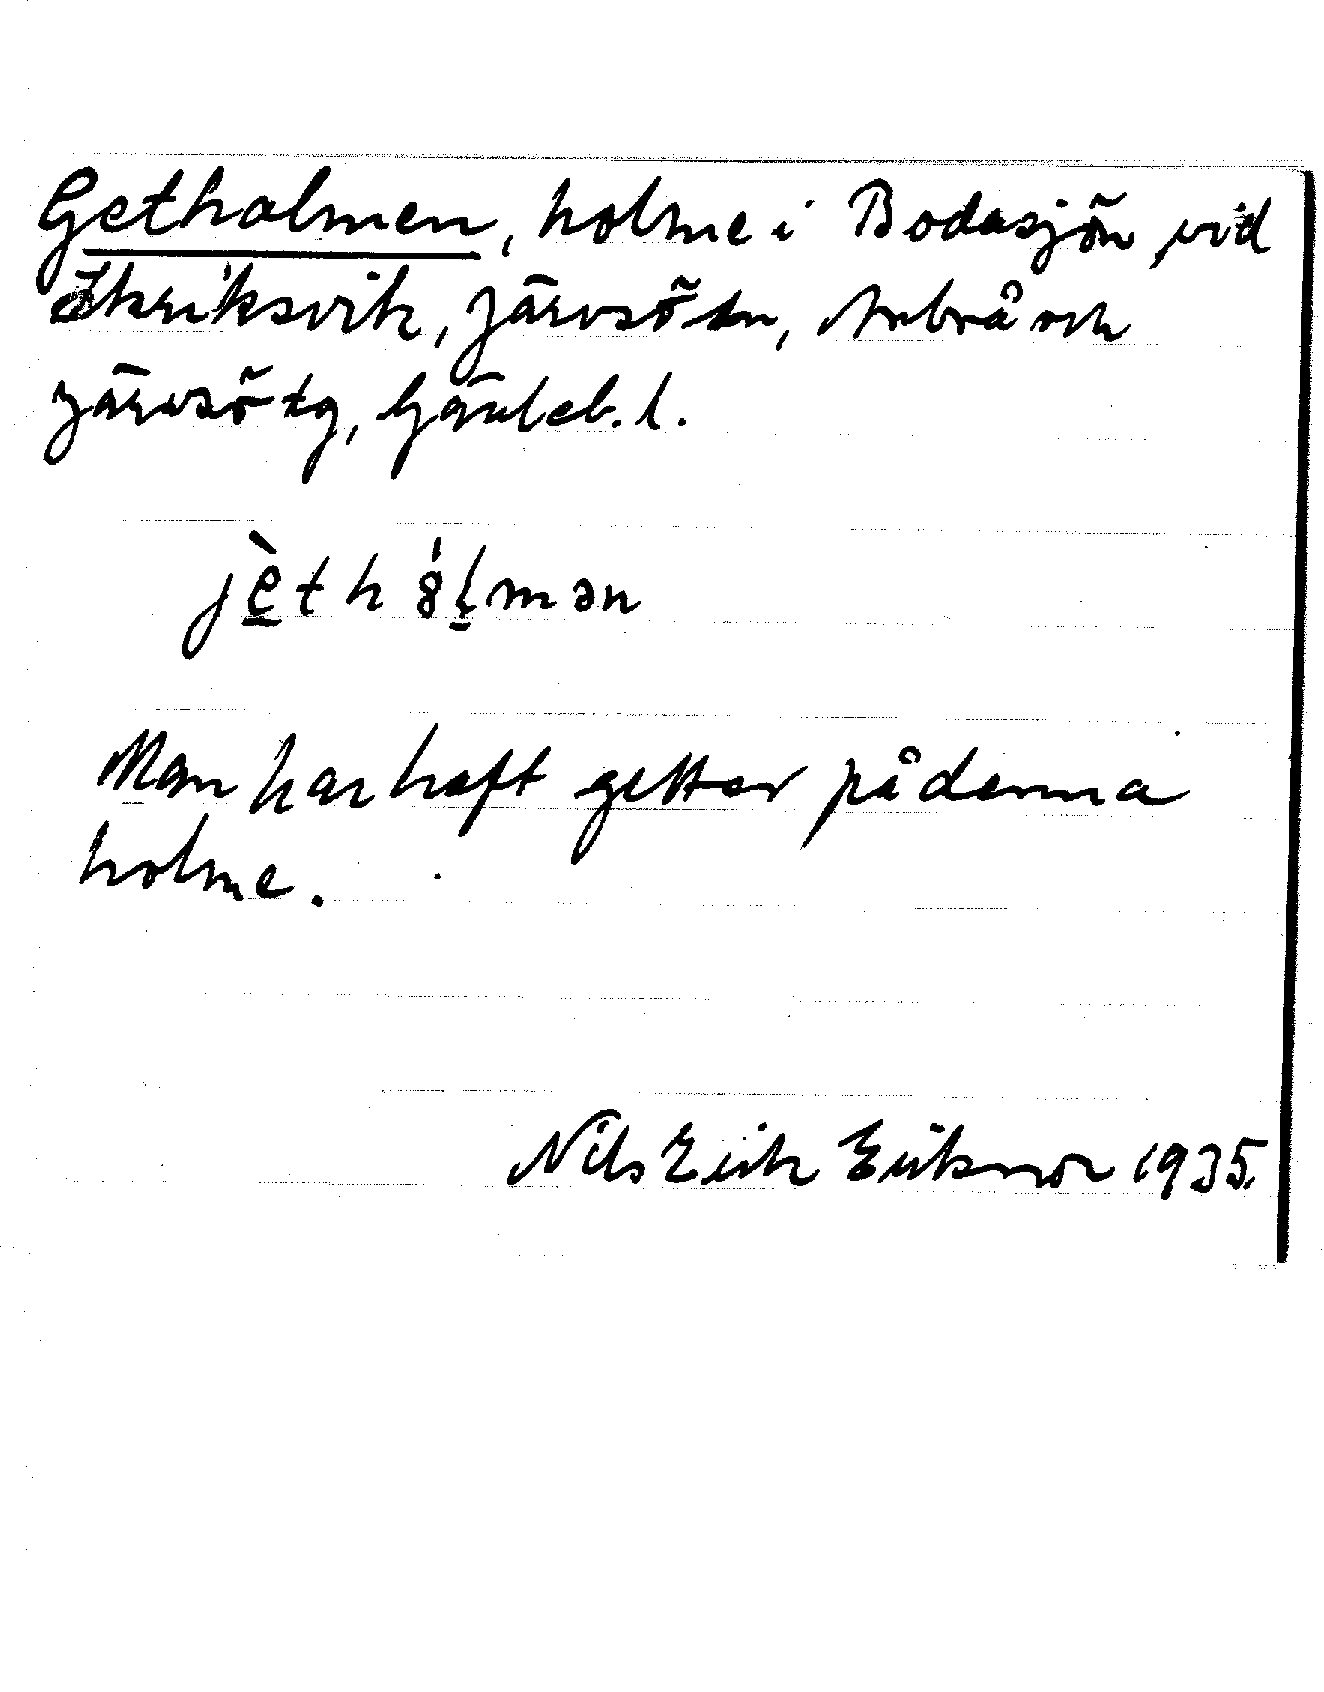 Getholmen, holme i Bodasjön vid
Skriksvik, Järvsö sn, Arbrå och
Järvsö tg, Gävleb. l.
jèt h ȣ́ḷmən
Man har haft getter på denna
holme.
Nils Erik Eriksson 1935.